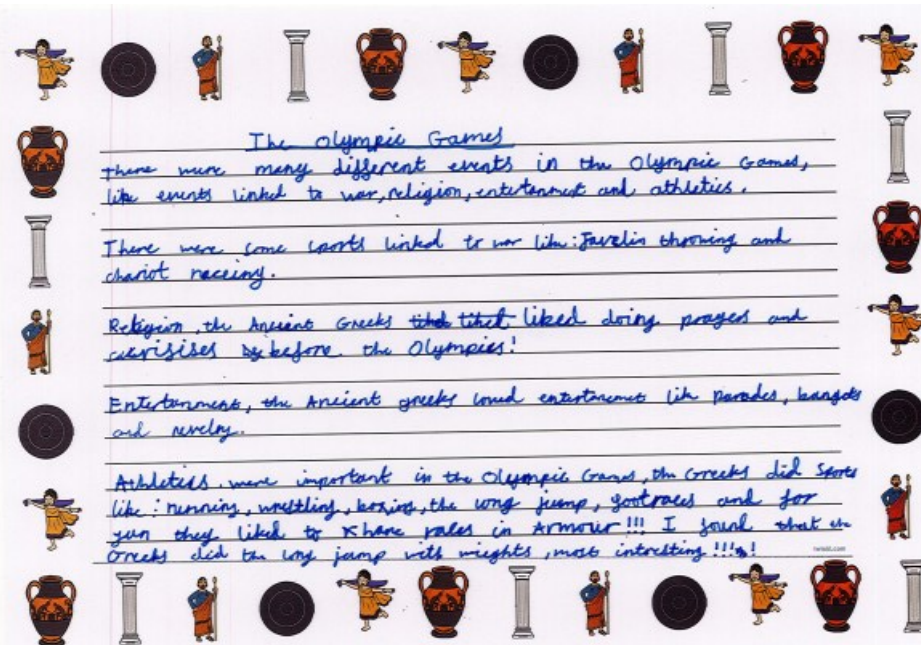 The Olympic Games
There were many different events in the Olympic Games,
like events linked to war, religion, entertenment and athletics.
There were some sports linked to war like: Javelin throwing and
chariot raceing.
Religion, the Ancient Greeks liked doing prayers and
before the Olympics!
Entertainment, the Ancient greeks loved entertainment like Parades, banquets
and revelry.
Athletics were important in the Olympic Games, the Greeks did Sports
like: running, wrestling, boxing, the long jump, footraces and for
fun they liked to have races in Armour!!! I found that the
Greeks did the long jump with weights, most intresting !!!!
twinkl.com